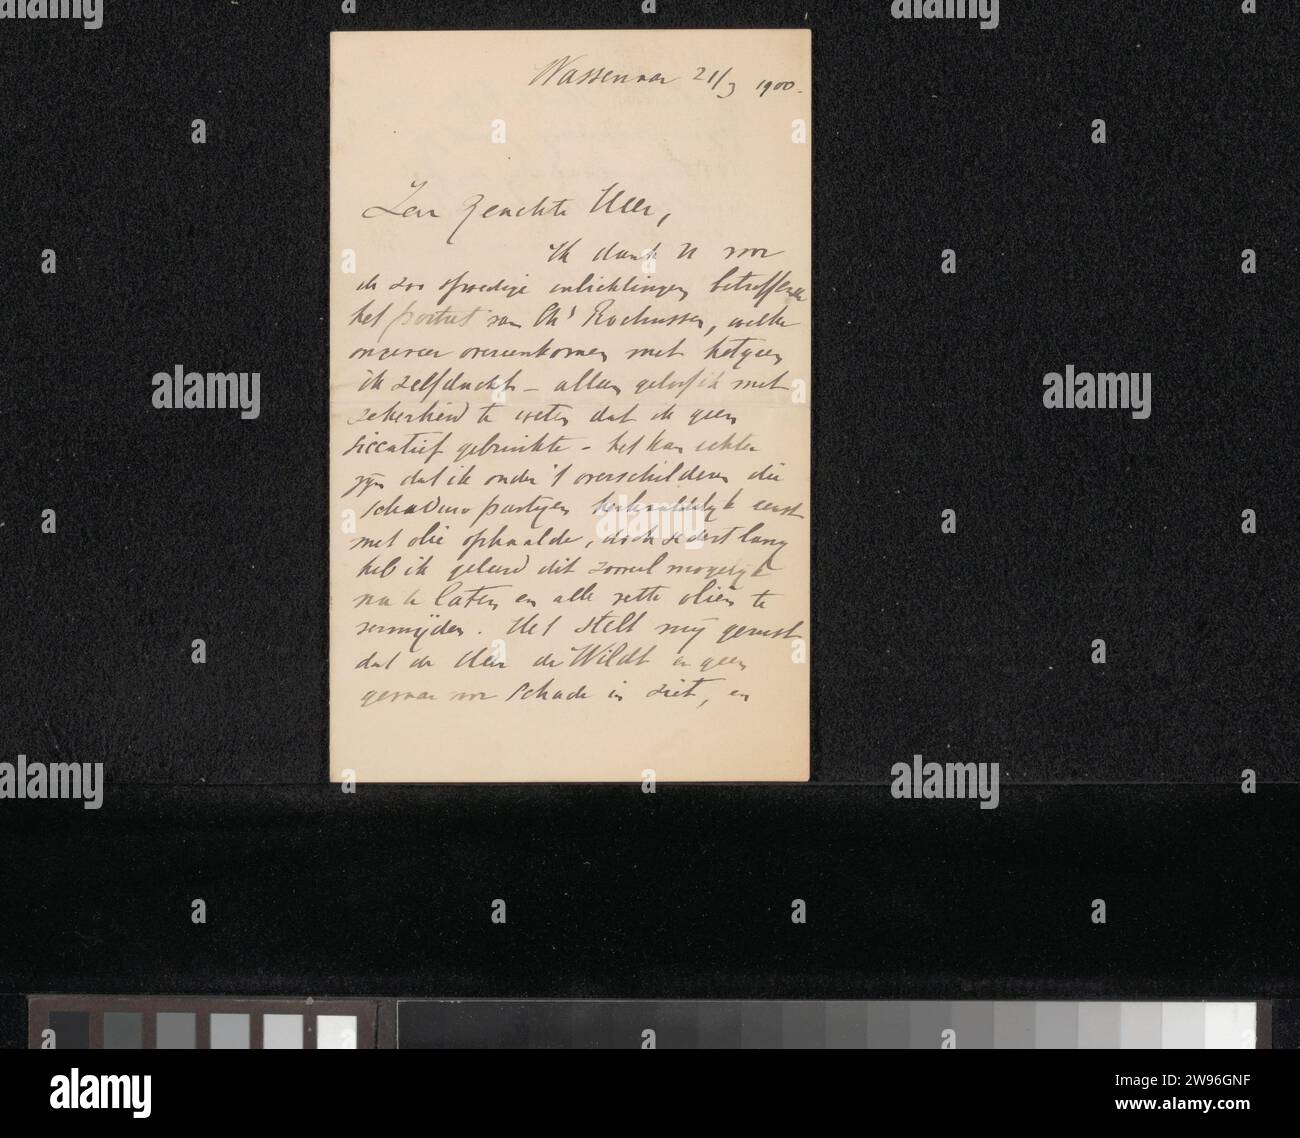 Wassenaar 21/3 1900.
Zeer geachte Heer,
Ik dank U voor
de zoo spoedige inlichtingen betreffende
het portret van Chs Rochussen, welke
ongeveer overeenkomen met hetgeen
ik zelf dacht – alleen geloof ik met
zekerheid te weten dat ik geen
siccatief gebruikte – het kan echter
zijn dat ik onder 't overschilderen die
schaduw partijen herhaaldelijk eerst
met olie ophaalde, doch sedert lang
heb ik geleerd dit zooveel mogelijk
na te laten en alle vette olien te
vermijden. Het stelt mij gerust
dat de Heer de Wildt er geen
gevaar voor schade in ziet, en
alamy
Image ID: 2W96GNF
www.alamy.com